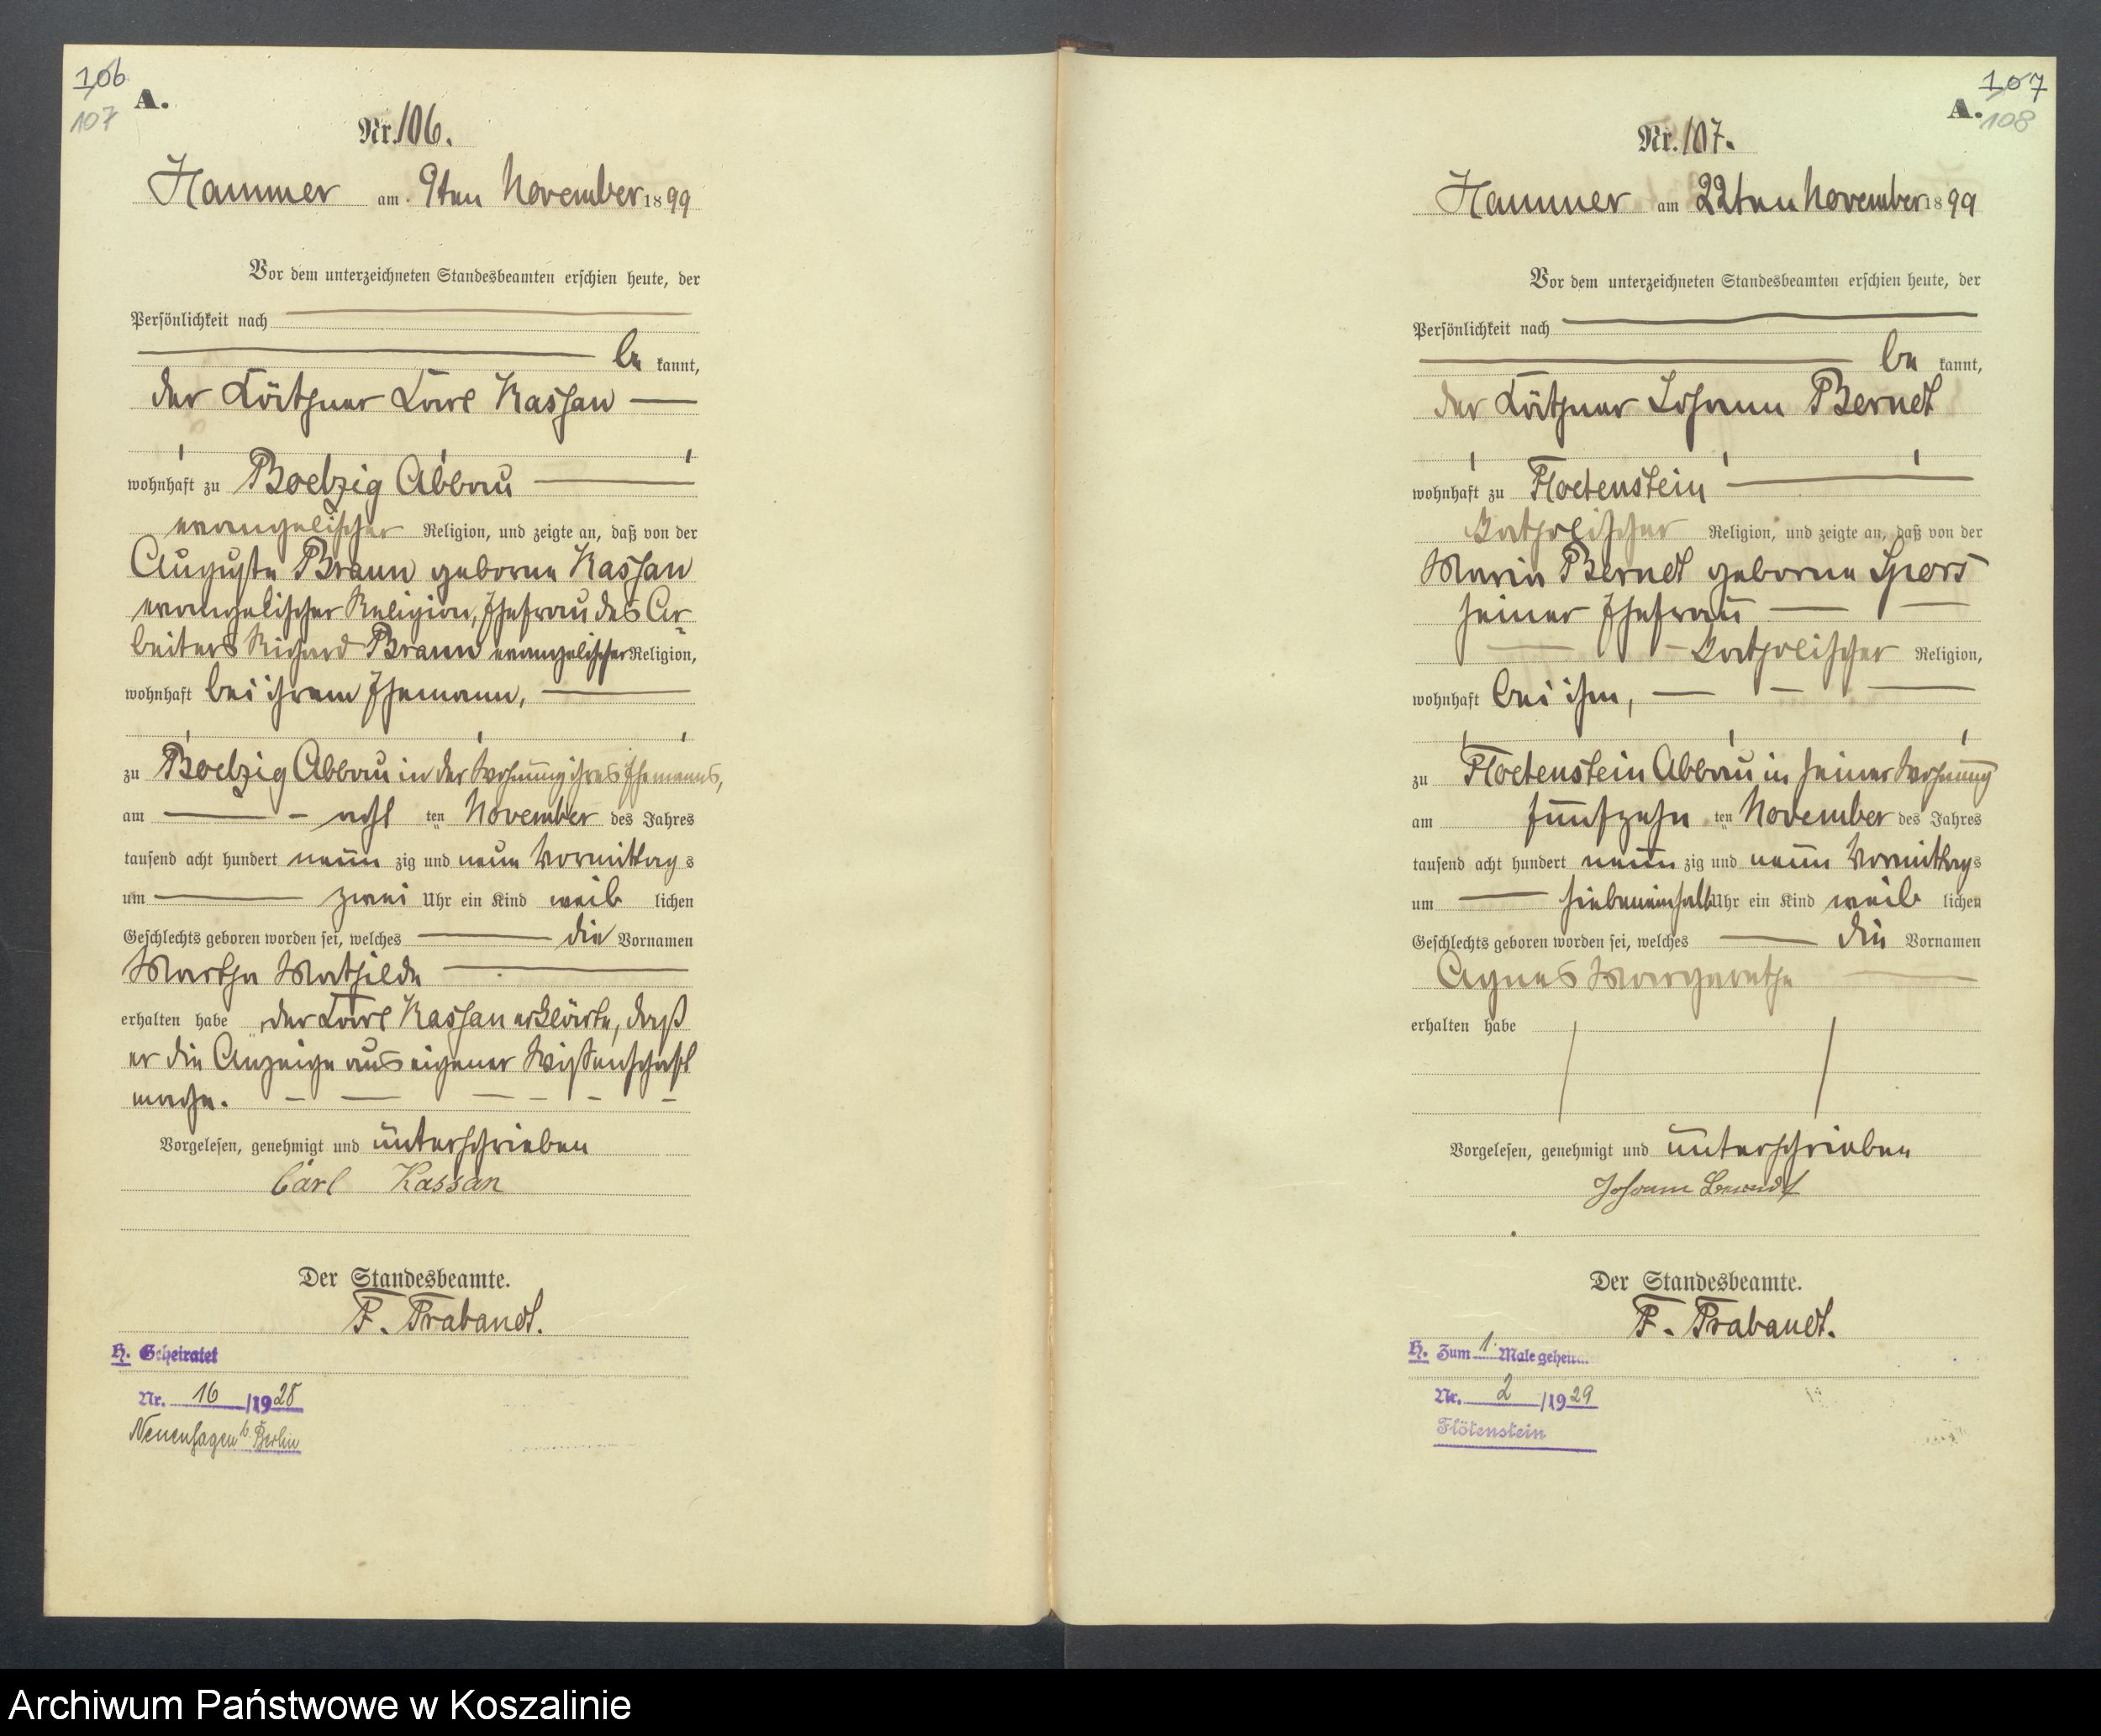 106
107
A.
Nr. 106.
Hammer am 9ten November 1899
Vor dem unterzeichneten Standesbeamten erschien heute, der
Persönlichkeit nach
be kannt,
der Käthner Karl Kassan
wohnhaft zu Boelzig Abbau
evangelischer Religion, und zeigte an, daß von der
Auguste Braun geborne Kassan
evangelischer Religion, Ehefrau des Ar-
beiters Richard Braun evangelischer Religion,
wohnhaft bei ihrem Ehemann,
zu Boelzig Abbau in der Wohnung ihres Ehemanns,
am acht ten November des Jahres
tausend acht hundert neun zig und neun Vormittags
um zwei Uhr ein Kind weib lichen
Geschlechts geboren worden sei, welches die Vornamen
Martha Mathilde
erhalten habe, der Karl Kassan erklärte, daß
er die Anzeige aus eigener Wissenschaft
mache.
Vorgelesen, genehmigt und unterschrieben
Carl Kassan
Der Standesbeamte.
F. Trabandt.
H. Geheiratet
Nr. 16 /1928
Neuenhagen b. Berlin
107
A.
108
Nr. 107.
Hammer am 22ten November 1899
Vor dem unterzeichneten Standesbeamten erschien heute, der
Persönlichkeit nach
be kannt,
der Käthner Johann Berndt
wohnhaft zu Floetenstein
katholischer Religion, und zeigte an, daß von der
Maria Berndt geborne Spors
seiner Ehefrau
katholischer Religion,
wohnhaft bei ihm,
zu Floetenstein Abbau in seiner Wohnung
am fünfzehn ten November des Jahres
tausend acht hundert neun zig und neun Vormittags
um siebeneinhalb Uhr ein Kind weib lichen
Geschlechts geboren worden sei, welches die Vornamen
Agnes Margarethe
erhalten habe
Vorgelesen, genehmigt und unterschrieben
Johann
Der Standesbeamte.
F. Trabandt.
H. Zum 1. Male gehei
Nr. 2 /1929
Flötenstein
Archiwum Państwowe w Koszalinie